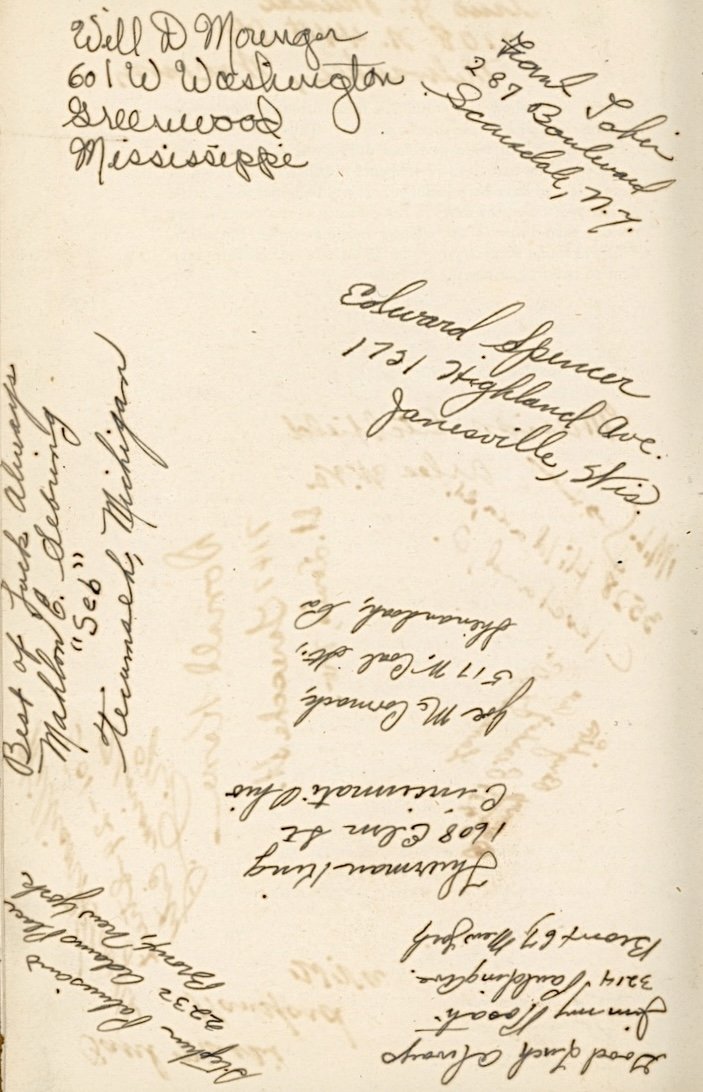 Will D Morenger
601 W Washington
Greenwood
Mississippi
Frank Tobin
287 Boulevard
Scarsdale, N.Y.
Edward Spencer
1121 Highland Ave.
Janesville, Wis.
Best of Luck Always
Mahlon C. Sebring
"Seb"
Tecumseh, Michigan
Joe McCormack,
517 W. Coal St.,
Shenandoah, Pa
Thurman King
1608 Elm St
Cincinnati Ohio
Good Luck Always
Jimmy Rosati
3214 Paulding Ave.
Bronx 67, New York
Stephen
2232 Adams Place
Bronx, New York